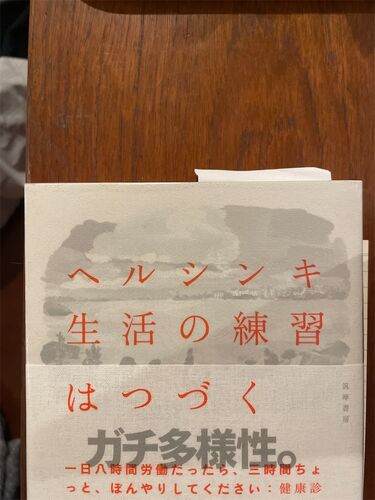 ヘルシンキ
生活の練習
はつづく
筑摩書房
ガチ多様性。
一日八時間労働だったら、三時間ちょ
っと、ぼんやりしてください：健康診